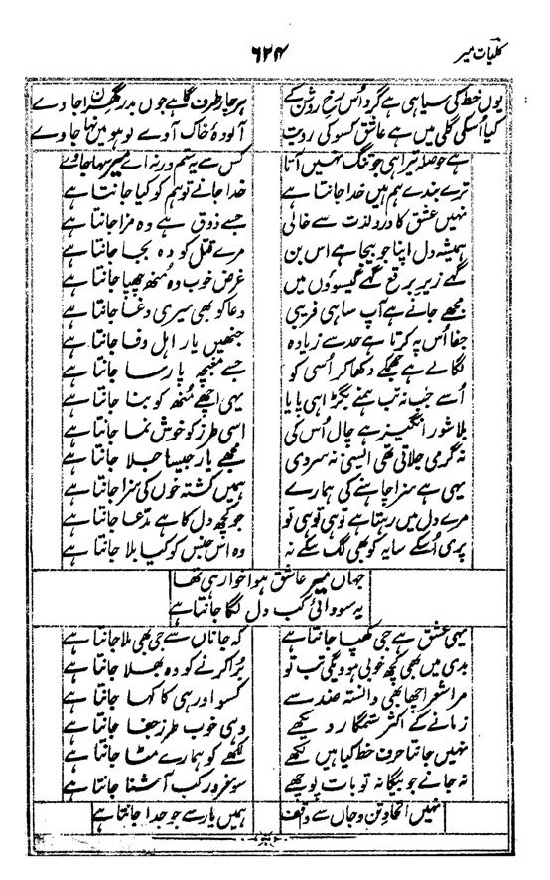 کلیات میر
۶۲۴
یوں خط کی سیاہی ہے گرد اُس رخِ روشن کے ہر چار طرف گاہے جوں بدر گہن راجا دے
کیا اُسکی گلی میں ہے عاشق کسو کی رویت آلودۂ خاک آوے لوہو میں نہا جاوے
ہے حوصلہ تیرا ہی جو تنگ نہیں آتا کس سے یہ ستم ورنہ اے میر سہا جاوے
ترے بندے ہم ہیں خدا جانتا ہے خدا جانے تو ہم کو کیا جانتا ہے
نہیں عشق کا درد لذت سے خالی جسے ذوق ہے وہ مزا جانتا ہے
ہمیشہ دل اپنا جو بیجا ہے اس بن مرے قتل کو وہ بجا جانتا ہے
گہے زیرِ برقع گہے گیسوؤں میں غرض خوب وہ مُنھ چھپا جانتا ہے
مجھے جانے ہے آپ سا ہی فریبی دعا کو بھی میری دغا جانتا ہے
جفا اُس پہ کرتا ہے حد سے زیادہ جنھیں یار اہلِ وفا جانتا ہے
لگا لے ہے جھمکے دکھا کر اُسی کو جسے مغبچہ پارسا جانتا ہے
اُسے جب نہ تب ہمنے بگڑا ہی پایا یہی اچھے مُنھ کو بنا جانتا ہے
بلا شور انگیز ہے چال اُس کی اسی طرز کو خوش نما جانتا ہے
نہ گرمی جلاتی تھی ایسی نہ سردی مجھے یار جیسا جلا جانتا ہے
یہی ہے سزا چاہنے کی ہمارے ہمیں کشتہ خوں کی سزا جانتا ہے
مرے دل میں رہتا ہے تو ہی تو ہی تو جو کچھ دل کا ہے مدعا جانتا ہے
پری اُسکے سایہ کو بھی لگ سکے نہ وہ اس جنس کو کیا بلا جانتا ہے
جہاں میر عاشق ہوا خوار ہی تھا
یہ سودائی کب دل لگا جانتا ہے
یہی عشق ہے جی کھپا جانتا ہے کہ جاناں سے جی بھی ملا جانتا ہے
بدی میں بھی کچھ خوبی ہووگی تب تو بُرا کرنے کو وہ بھلا جانتا ہے
مرا شعر اچھا بھی دانستہ ضد سے کسو اور ہی کا کہا جانتا ہے
زمانے کے اکثر ستمگار دیکھے وہی خوب طرزِ جفا جانتا ہے
نہیں جانتا حرف خط کیا ہیں لکھے لکھے کو ہمارے مٹا جانتا ہے
نہ جانے جو بیگانہ تو بات پوچھے سو مغرور کب آشنا جانتا ہے
نہیں اتحادِ تن و جاں سے واقف ہمیں یار سے جو جدا جانتا ہے